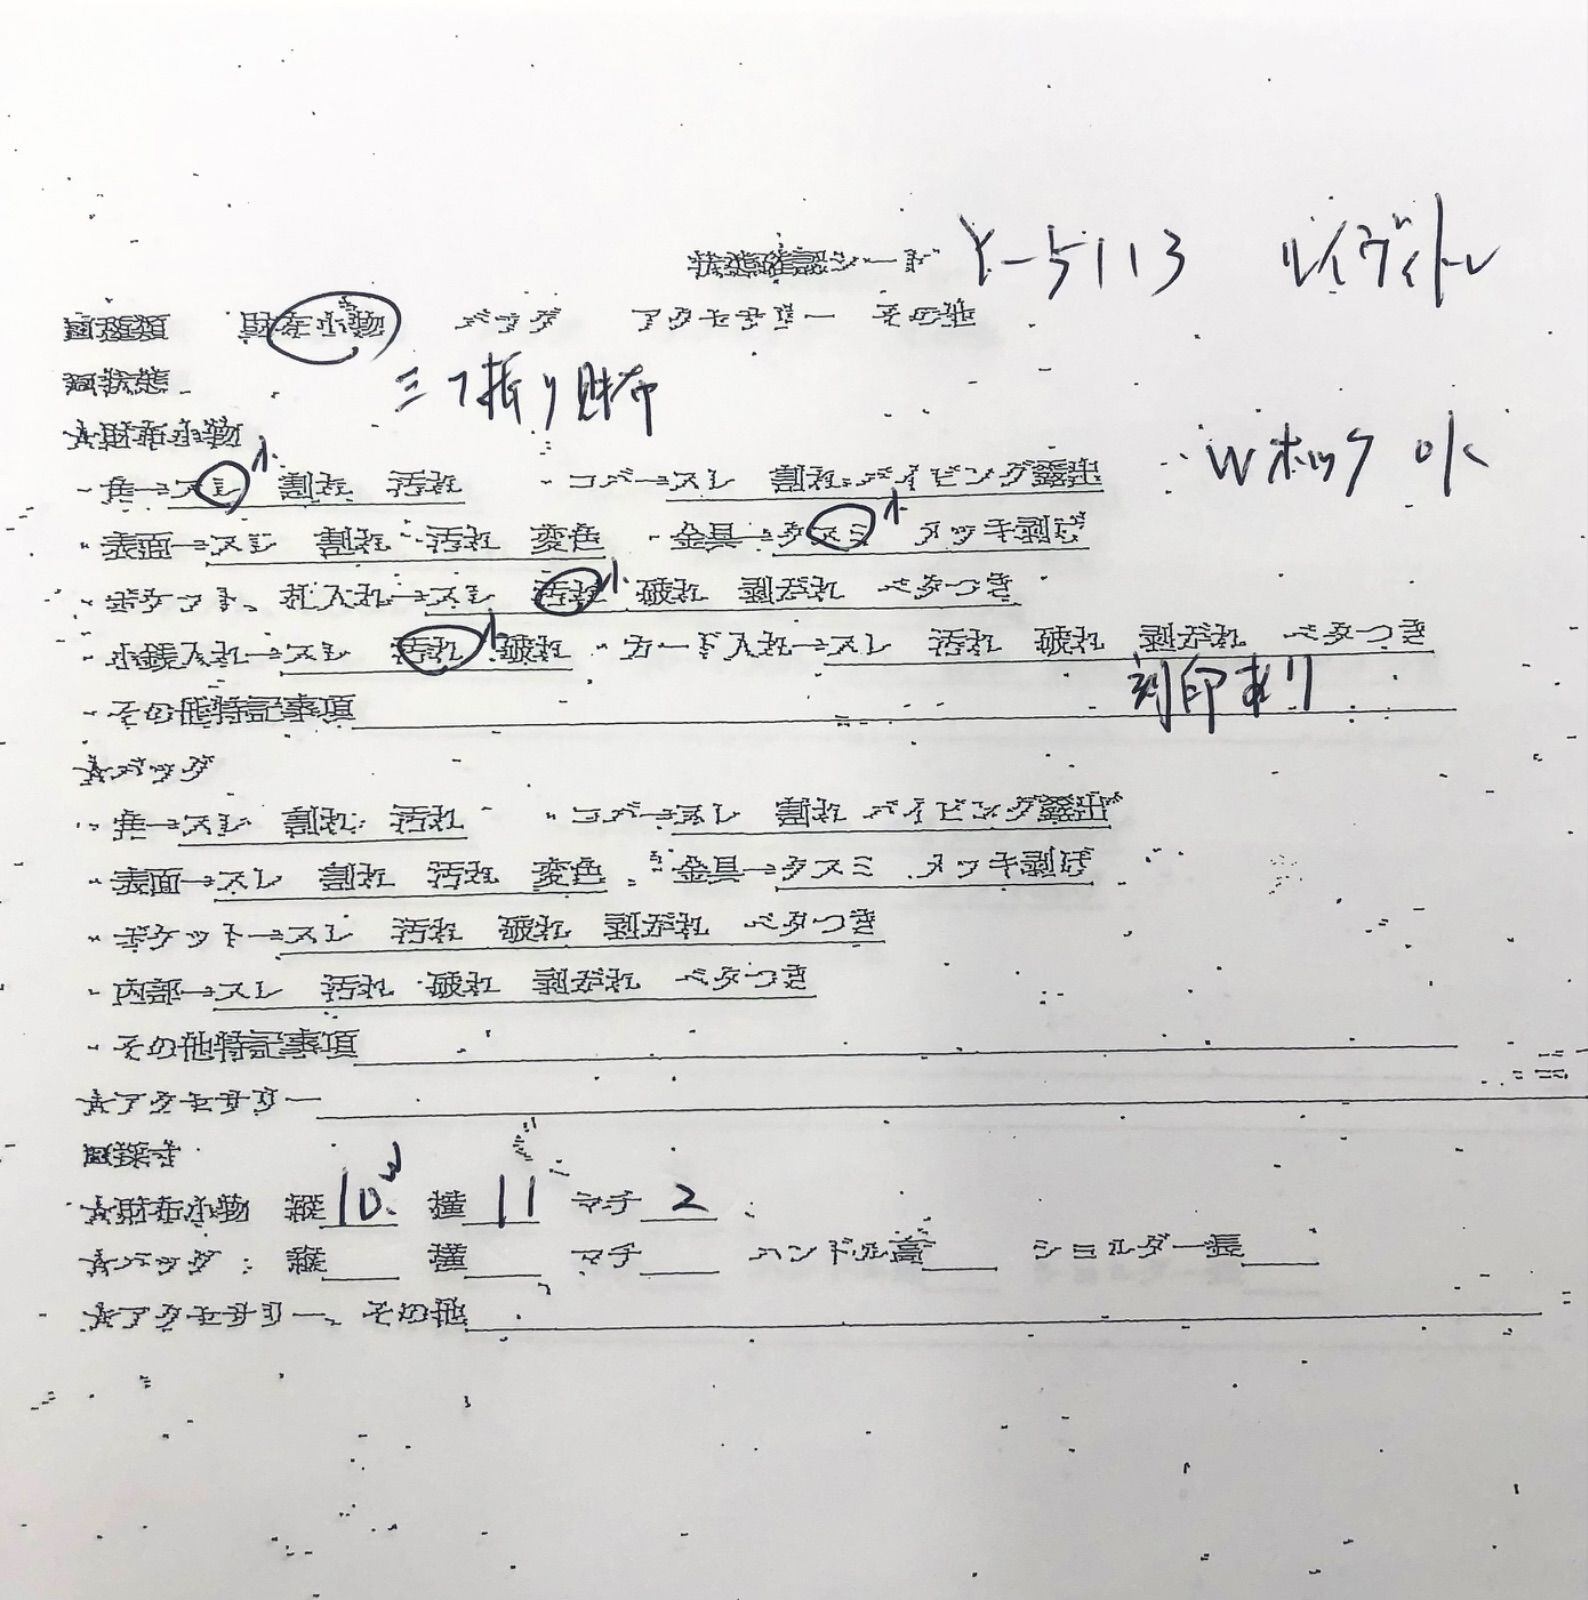 状態確認シート Y-5113 ルイヴィトン
□種類 財布小物 バッグ アクセサリー その他
□状態 三つ折り財布
☆財布小物
・角→スレ 小 割れ 汚れ ・コバ→スレ 割れ パイピング露出 Wホック OK
・表面→スレ 割れ 汚れ 変色 ・金具→クスミ 小 メッキ剥げ
・ポケット、札入れ→スレ 汚れ 小 破れ 剥がれ ベタつき
・小銭入れ→スレ 汚れ 小 破れ ・カード入れ→スレ 汚れ 破れ 剥がれ ベタつき
・その他特記事項 刻印あり
☆バッグ
・角→スレ 割れ 汚れ ・コバ→スレ 割れ パイピング露出
・表面→スレ 割れ 汚れ 変色 ・金具→クスミ メッキ剥げ
・ポケット→スレ 汚れ 破れ 剥がれ ベタつき
・内部→スレ 汚れ 破れ 剥がれ ベタつき
・その他特記事項
☆アクセサリー
□採寸
☆財布小物 縦10. 横11 マチ2
☆バッグ 縦 横 マチ ハンドル高 ショルダー長
☆アクセサリー、その他